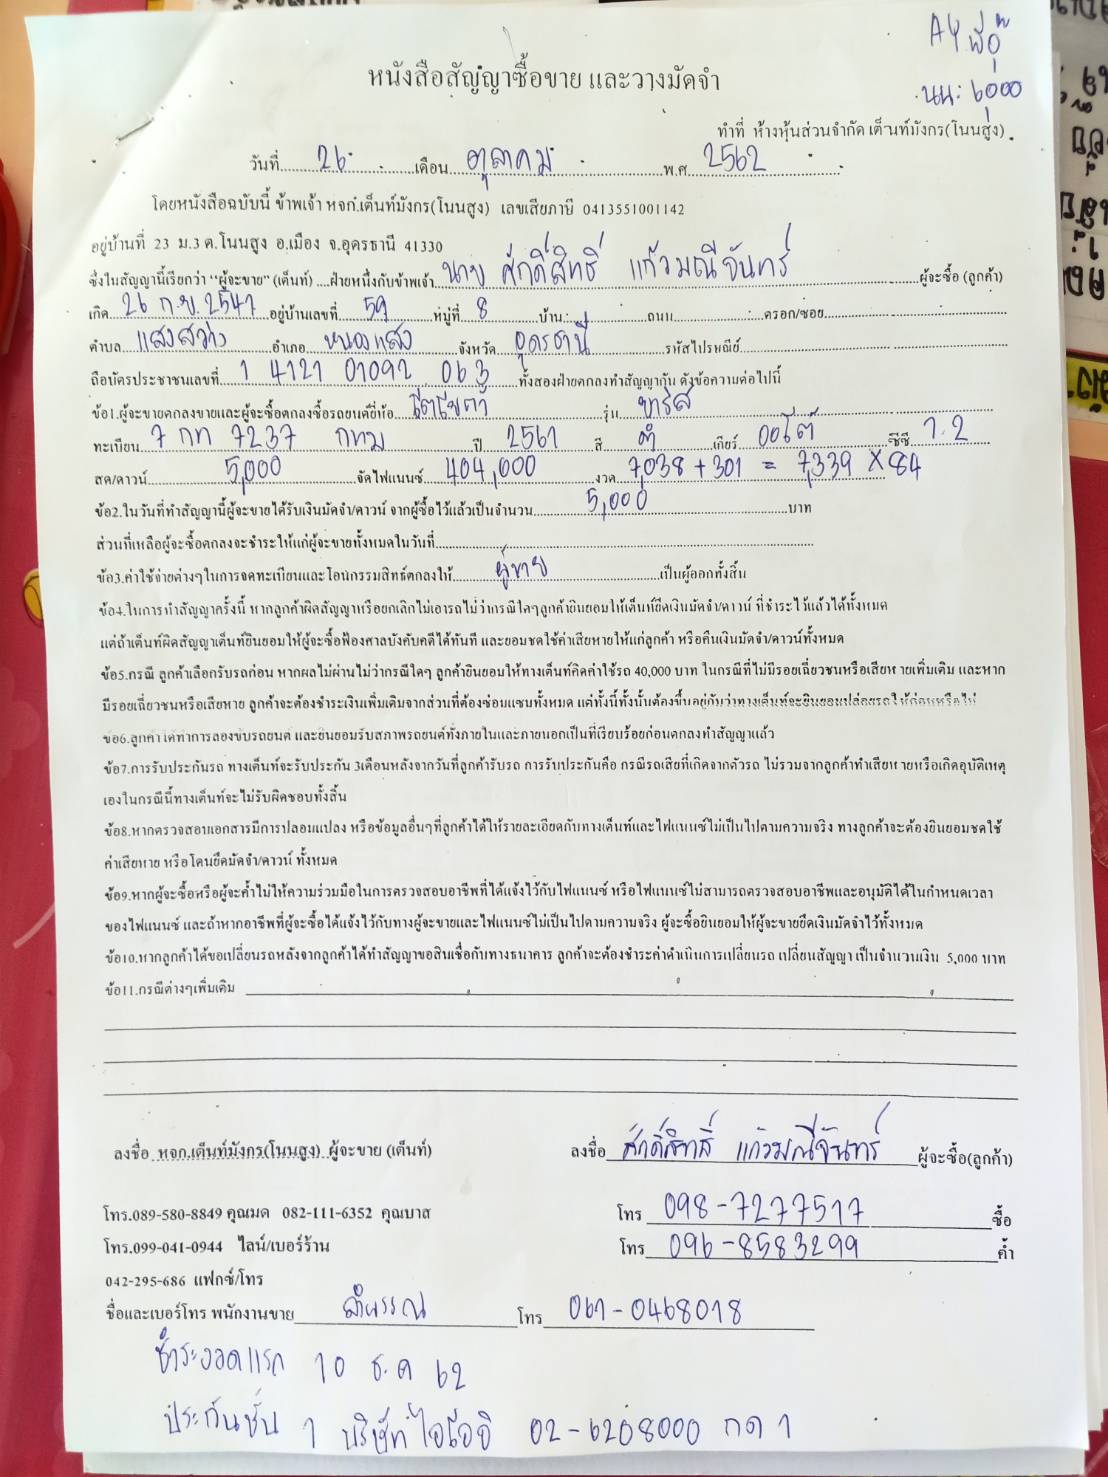 AY พี่อู๊
นน: 6000
หนังสือสัญญาซื้อขาย และวางมัดจำ
ทำที่ ห้างหุ้นส่วนจำกัด เต็นท์มังกร(โนนสูง)
วันที่ 26 เดือน ตุลาคม พ.ศ 2562
โดยหนังสือฉบับนี้ ข้าพเจ้า หจก.เต็นท์มังกร(โนนสูง) เลขเสียภาษี 0413551001142
อยู่บ้านที่ 23 ม.3 ต.โนนสูง อ.เมือง จ.อุดรธานี 41330
ซึ่งในสัญญานี้เรียกว่า "ผู้จะขาย" (เต็นท์) ....ฝ่ายหนึ่งกับข้าพเจ้า นาย ศักดิ์สิทธิ์ แก้วมณีจันทร์ ผู้จะซื้อ (ลูกค้า)
เกิด 26 ก.ย. 2541 อยู่บ้านเลขที่ 59 หมู่ที่ 8 บ้าน ถนน ตรอก/ซอย
ตำบล แสงสว่าง อำเภอ หนองแสง จังหวัด อุดรธานี รหัสไปรษณีย์
ถือบัตรประชาชนเลขที่ 1 4121 01092 063 ทั้งสองฝ่ายตกลงทำสัญญากัน ดังข้อความต่อไปนี้
ข้อ1.ผู้จะขายตกลงขายและผู้จะซื้อตกลงซื้อรถยนต์ยี่ห้อ โตโยต้า รุ่น ยาริส
ทะเบียน 7 กท 7237 กทม ปี 2561 สี ดำ เกียร์ ออโต้ ซีซี 1.2
สด/ดาวน์ 5,000 จัดไฟแนนซ์ 404,000 งวด 7,038 + 301 = 7,339 X 84
ข้อ2.ในวันที่ทำสัญญานี้ผู้จะขายได้รับเงินมัดจำ/ดาวน์ จากผู้ซื้อไว้แล้วเป็นจำนวน 5,000 บาท
ส่วนที่เหลือผู้จะซื้อตกลงจะชำระให้แก่ผู้จะขายทั้งหมดในวันที่
ข้อ3.ค่าใช้จ่ายต่างๆในการจดทะเบียนและโอนกรรมสิทธิ์ตกลงให้ ผู้ขาย เป็นผู้ออกทั้งสิ้น
ข้อ4.ในการทำสัญญาครั้งนี้ หากลูกค้าผิดสัญญาหรือยกเลิกไม่เอารถไม่ว่ากรณีใดๆลูกค้ายินยอมให้เต็นท์ยึดเงินมัดจำ/ดาวน์ ที่ชำระไว้แล้วได้ทั้งหมด
แต่ถ้าเต็นท์ผิดสัญญาเต็นท์ยินยอมให้ผู้จะซื้อฟ้องศาลบังคับคดีได้ทันที และยอมชดใช้ค่าเสียหายให้แก่ลูกค้า หรือคืนเงินมัดจำ/ดาวน์ทั้งหมด
ข้อ5.กรณี ลูกค้าเลือกรับรถก่อน หากผลไม่ผ่านไม่ว่ากรณีใดๆ ลูกค้ายินยอมให้ทางเต็นท์คิดค่าใช้รถ 40,000 บาท ในกรณีที่ไม่มีรอยเฉี่ยวชนหรือเสียหายเพิ่มเติม และหาก
มีรอยเฉี่ยวชนหรือเสียหาย ลูกค้าจะต้องชำระเงินเพิ่มเติมจากส่วนที่ต้องซ่อมแซมทั้งหมด แต่ทั้งนี้ทั้งนั้นต้องขึ้นอยู่กับว่าทางเต็นท์จะยินยอมปล่อยรถให้ก่อนหรือไม่
ข้อ6.ลูกค้าได้ทำการลองขับรถยนต์ และยินยอมรับสภาพรถยนต์ทั้งภายในและภายนอกเป็นที่เรียบร้อยก่อนตกลงทำสัญญาแล้ว
ข้อ7.การรับประกันรถ ทางเต็นท์จะรับประกัน 3เดือนหลังจากวันที่ลูกค้ารับรถ การรับประกันคือ กรณีรถเสียที่เกิดจากตัวรถ ไม่รวมจากลูกค้าทำเสียหายหรือเกิดอุบัติเหตุ
เองในกรณีนี้ทางเต็นท์จะไม่รับผิดชอบทั้งสิ้น
ข้อ8.หากตรวจสอบเอกสารมีการปลอมแปลง หรือข้อมูลอื่นๆที่ลูกค้าได้ให้รายละเอียดกับทางเต็นท์และไฟแนนซ์ไม่เป็นไปตามความจริง ทางลูกค้าจะต้องยินยอมชดใช้
ค่าเสียหาย หรือโดนยึดมัดจำ/ดาวน์ ทั้งหมด
ข้อ9.หากผู้จะซื้อหรือผู้จะค้ำไม่ให้ความร่วมมือในการตรวจสอบอาชีพที่ได้แจ้งไว้กับไฟแนนซ์ หรือไฟแนนซ์ไม่สามารถตรวจสอบอาชีพและอนุมัติได้ในกำหนดเวลา
ของไฟแนนซ์ และถ้าหากอาชีพที่ผู้จะซื้อได้แจ้งไว้กับทางผู้จะขายและไฟแนนซ์ไม่เป็นไปตามความจริง ผู้จะซื้อยินยอมให้ผู้จะขายยึดเงินมัดจำไว้ทั้งหมด
ข้อ10.หากลูกค้าได้ขอเปลี่ยนรถหลังจากลูกค้าได้ทำสัญญาขอสินเชื่อกับทางธนาคาร ลูกค้าจะต้องชำระค่าดำเนินการเปลี่ยนรถ เปลี่ยนสัญญา เป็นจำนวนเงิน 5,000 บาท
ข้อ11.กรณีต่างๆเพิ่มเติม
ลงชื่อ หจก.เต็นท์มังกร(โนนสูง) ผู้จะขาย (เต็นท์) ลงชื่อ ศักดิ์สิทธิ์ แก้วมณีจันทร์ ผู้จะซื้อ(ลูกค้า)
โทร.089-580-8849 คุณมด 082-111-6352 คุณบาส โทร 098-7277517 ซื้อ
โทร.099-041-0944 ไลน์/เบอร์ร้าน โทร 096-8583299 ค้ำ
042-295-686 แฟกซ์/โทร
ชื่อและเบอร์โทร พนักงานขาย ลำพรรณ โทร 061-0468018
ชำระงวดแรก 10 ธ.ค 62
ประกันชั้น 1 บริษัทไอโออิ 02-6208000 กด 1